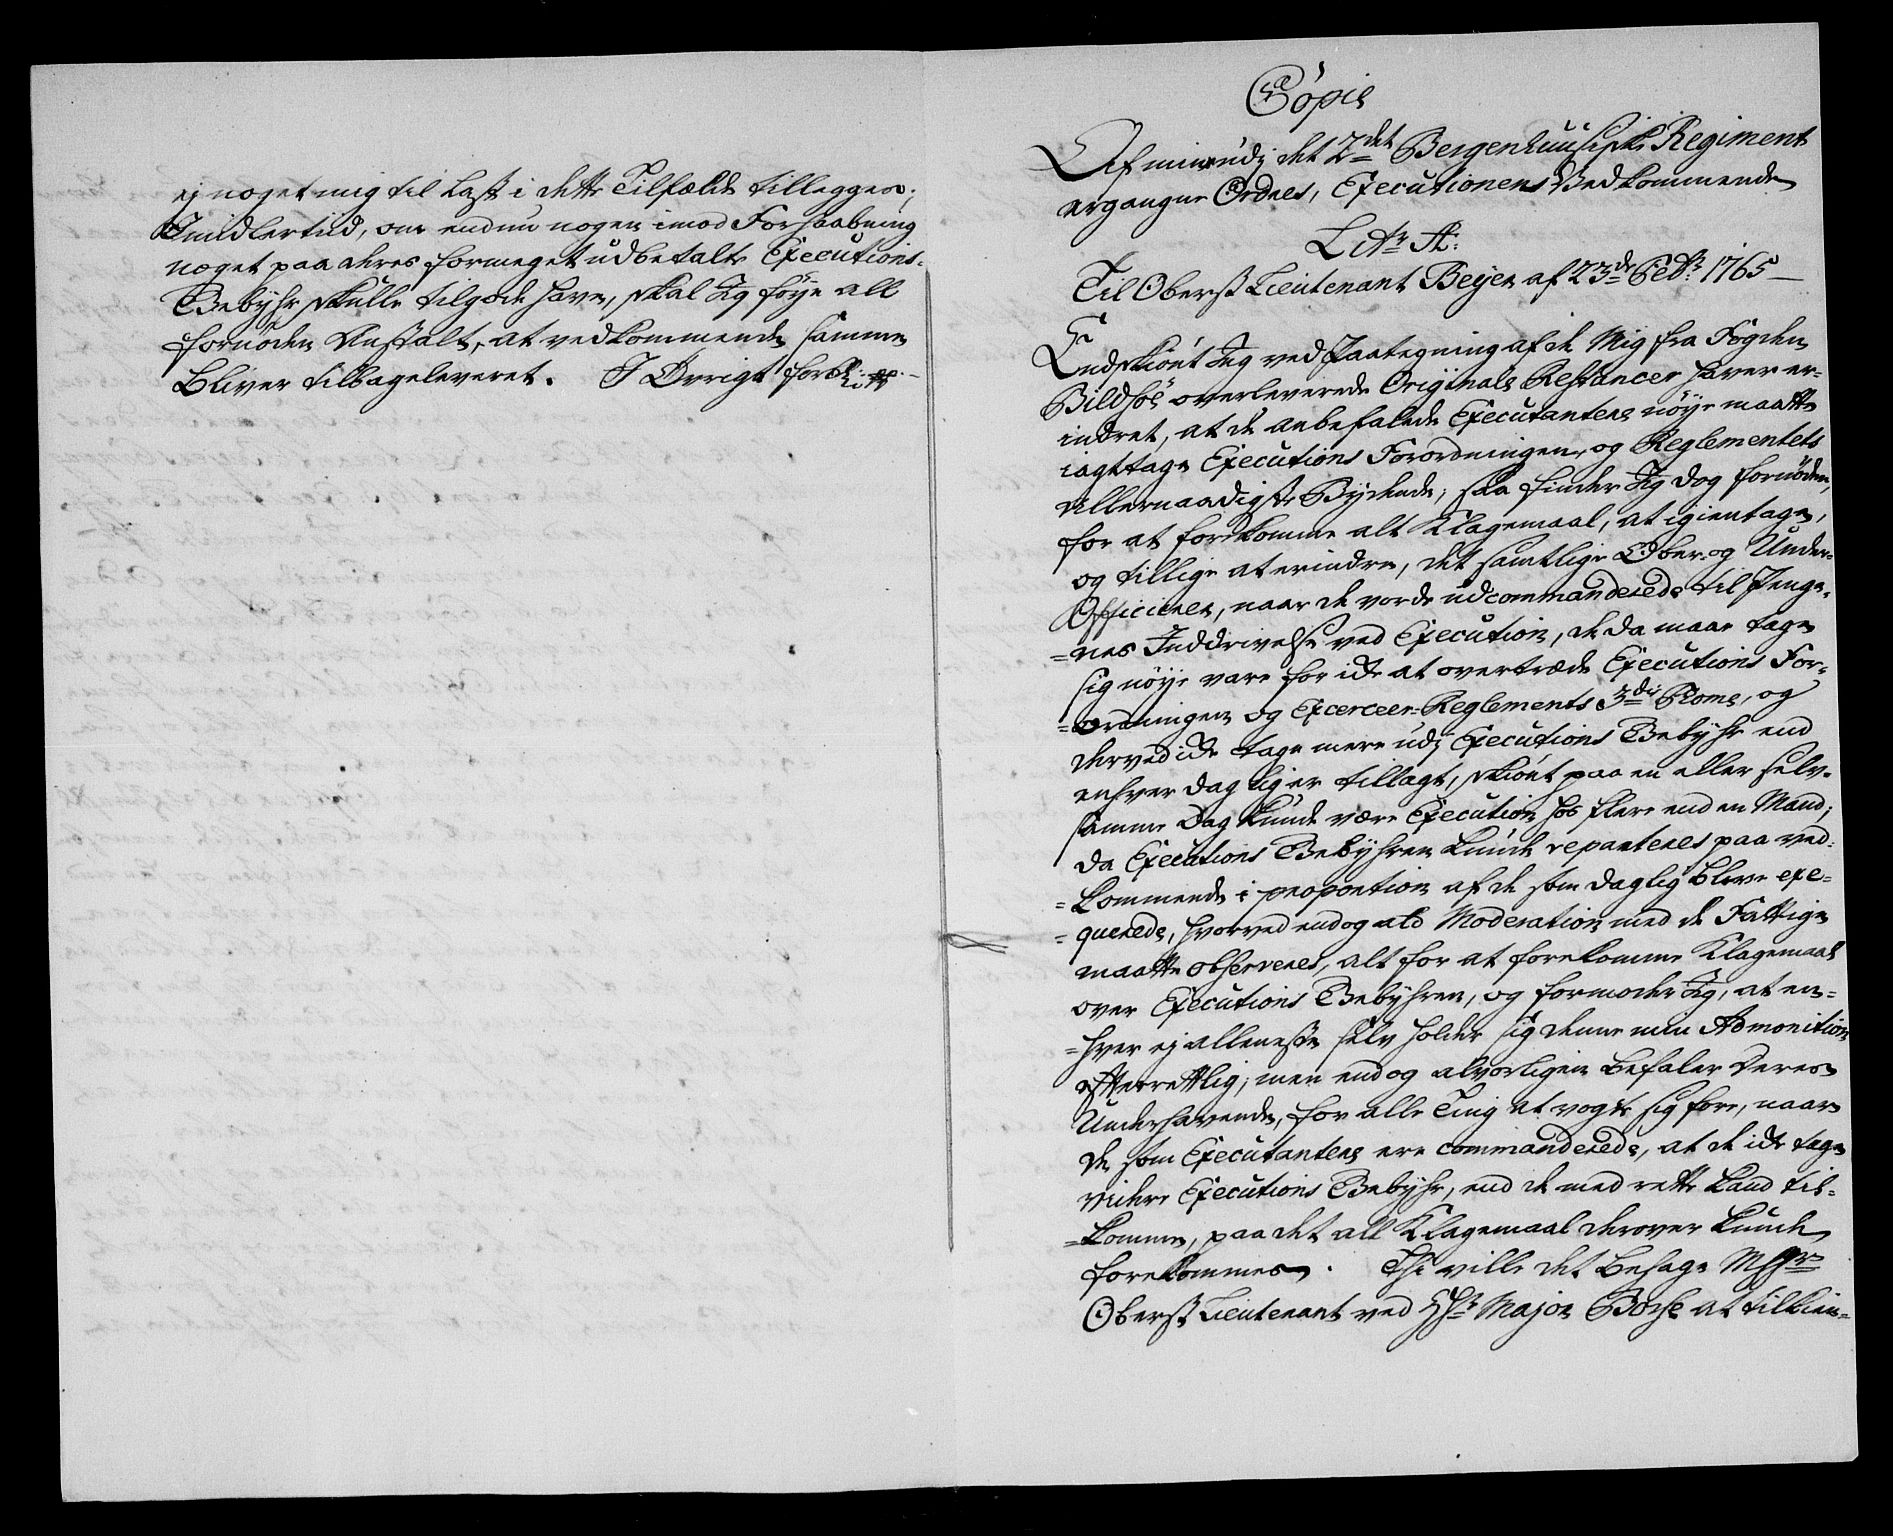 ej noget mig til Last i dette Tilfælde tillegges;
Imidlertid, om endnu nogen imod Forhaabning
noget paa deres formeget udbetalte Executions-
Gebyhr skulle tilgode have, skal Jeg føye all
fornøden Anstalt, at vedkommende samme
bliver tilbageleveret. I Øvrigt forbl:
Copie
Af mine udj det 2det Bergenhuusiske Regiment
ergangne Ordres, Executionens Vedkommende
Litr A:
Til Oberst Lieutenant Beyer af 23de Febr: 1765
Endskiönt Jeg ved Paategning af de Mig fra Fogden
Bildsöe overleverede Originale Restancer haver er-
indret, at de anbefalede Executantere nöye maatte
iagttage Executions Forordningen, og Reglementets
Allernaadigste Bydende; saa finder Jeg dog fornöden,
for at forekomme alt Klagemaal, at igientage,
og tillige at erindre, det samtlige Ober- og Under-
Officierer, naar de vorde udcommanderede til Penge-
=nes Inddrivelse ved Execution, de da maae tage
sig nöye vare for icke at overtræde Executions For-
=ordningen og Excerceer-Reglements 3die Tome, og
derved icke tage mere udj Executions Gebyhr end
enhver daglig er tillagt, skiönt paa en eller selv-
samme Dag kunde være Execution hos flere end en Mand;
da Executions Gebyhren kunde reparteres paa ved-
=kommende i proportion af de som daglig bleve exe-
=querede, hvorved endog ald Moderation med de Fattige
maatte observeres, alt for at forekomme Klagemaal
over Executions Gebyhren, og formoder Jeg, at en-
=hver ej alleneste selv holder sig denne min Admonition
efterrettlig; men endog alvorligen befaler deres
Underhavende, for alle Ting at vogte sig fore, naar
de som Executantere ere commanderede, at de icke tage
videre Executions Gebyhr, end de med rette kand til-
=komme, paa det all Klagemaal derover kunde
forekommes. Thi ville det behage Mhr
Oberst Lieutenant ved Hr Major Boshe at tilkien-